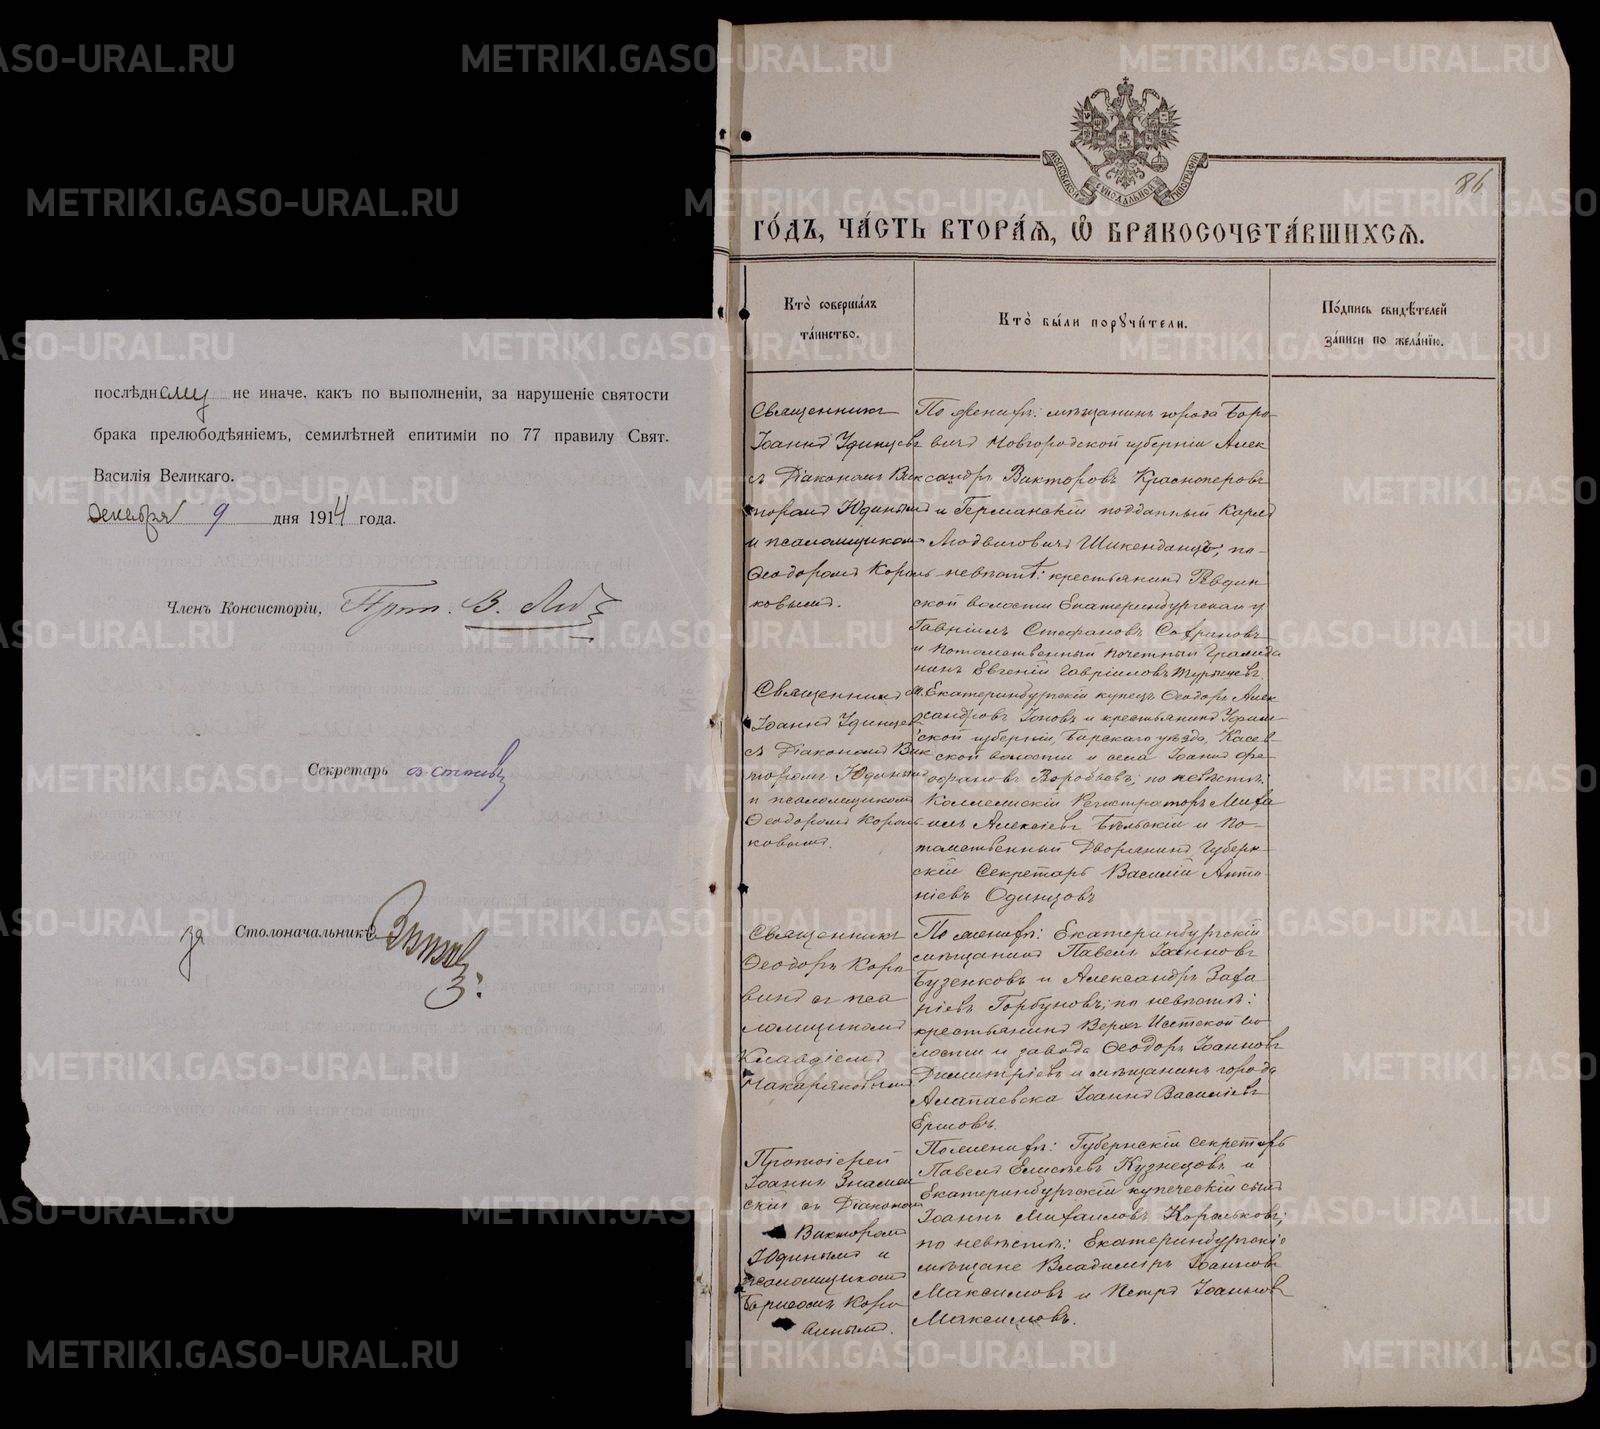 послѣднему не иначе, какъ по выполненіи, за нарушеніе святости
брака прелюбодѣяніемъ, семилѣтней епитиміи по 77 правилу Свят.
Василія Великаго.
Декабря 9 дня 1914 года.
Членъ Консисторіи, Прот. В.
Секретарь
за Столоначальникъ
86
МОСКОВСКОЙ СѴНОДАЛЬНОЙ ТИПОГРАФІИ
ГО́ДЪ, ЧА́СТЬ ВТОРА́Ѧ, Ѽ БРАКОСОЧЕТА́ВШИХСѦ.
Кто̀ соверша́лъ
та́инство.
Кто̀ бы́ли порꙋчи́тели.
По́дпись свидѣ́телей
за́писи по жела́нїю.
Священникъ
Іоаннъ Удинцевъ
съ Діакономъ Вик
торомъ Юдинымъ
и псаломщикомъ
Ѳеодоромъ Король
ковымъ.
По женихѣ: мѣщанинъ города Боро
вичъ Новгородской губерніи Алек
сандръ Викторовъ Красноперовъ
и Германскій подданный Карлъ
Людвиговичъ Шикенданцъ; по
невѣстѣ: крестьянинъ Ревдин
ской волости Екатеринбургскаго у
Гавріилъ Стефановъ Софроновъ
и потомственный почетный гражда
нинъ Евгеній Гавріиловъ
Священникъ
Іоаннъ Удинцевъ
съ Діакономъ Вик
торомъ Юдинымъ
и псаломщикомъ
Ѳеодоромъ Король
ковымъ.
Екатеринбургскій купецъ Ѳеодоръ Алек
сандровъ Іоновъ и крестьянинъ Уфим
ской губерніи, Бирскаго уѣзда, Касев
ской волости и села Іоаннъ
Воробьевъ; по невѣстѣ:
Коллежскій Регистраторъ Миха
илъ Алексіевъ Бѣльскій и По
томственный Дворянинъ Губерн
скій Секретарь Василій Анто
ніевъ Одинцовъ
Священникъ
Ѳеодоръ Коро
винъ съ пса
ломщикомъ
Клавдіемъ
Макаряковымъ
По женихѣ: Екатеринбургскій
мѣщанинъ Павелъ Іоанновъ
Бузенковъ и Александръ Заха
ріевъ Горбуновъ; по невѣстѣ:
крестьянинъ Верхъ Исетской во
лости и завода Ѳеодоръ Іоанновъ
Димитріевъ и мѣщанинъ города
Алапаевска Іоаннъ Василіевъ
Ершовъ.
Протоіерей
Іоаннъ Знамен
скій съ Діакономъ
Викторомъ
Юдинымъ и
псаломщикомъ
Борисомъ Коро
винымъ.
По женихѣ: Губернскій секретарь
Павелъ Елисѣевъ Кузнецовъ и
Екатеринбургскій купеческій сынъ
Іоаннъ Михаиловъ Корольковъ;
по невѣстѣ: Екатеринбургскіе
мѣщане Владиміръ Іоанновъ
Максимовъ и Петръ Іоанновъ
Максимовъ.
METRIKI.GASO-URAL.RU